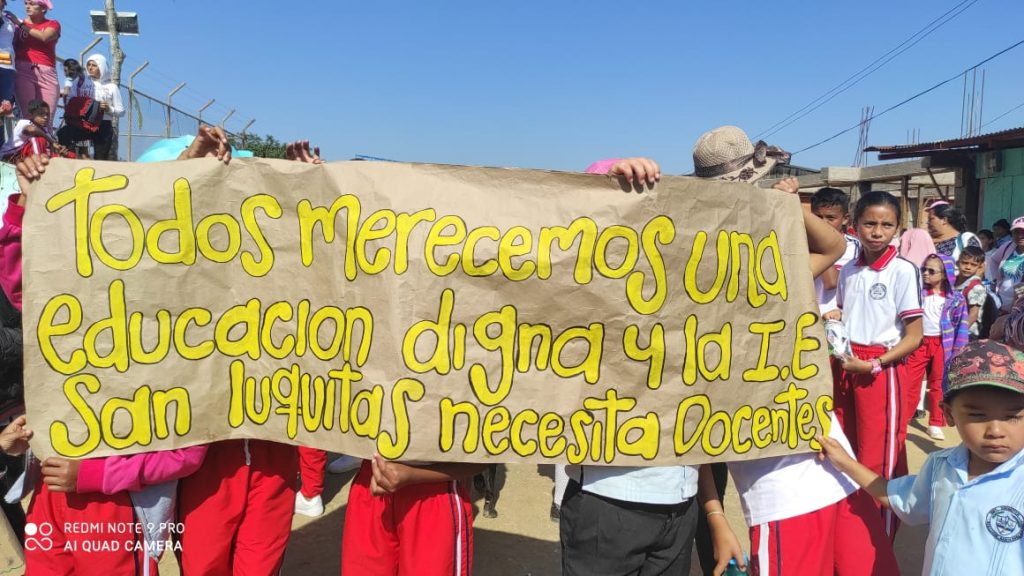 Todos merecemos una
educacion digna y la I.E
San luquitas necesita Docentes
REDMI NOTE 9 PRO
AI QUAD CAMERA